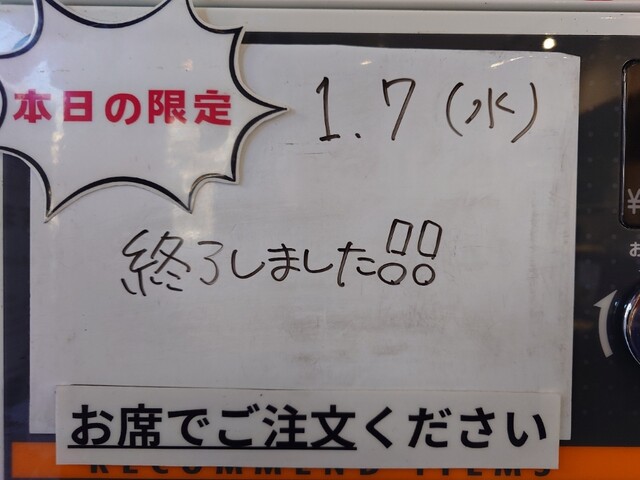 本日の限定
1.7(水)
終了しました!!
お席でご注文ください
RECOMMEND ITEMS
¥
お